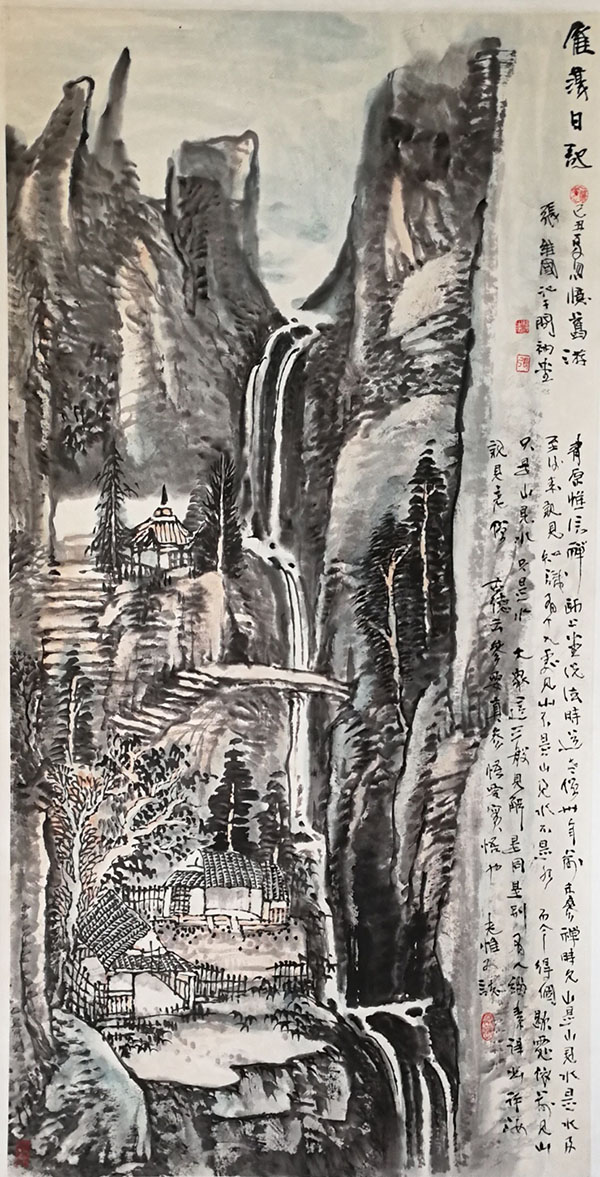 雁蕩日記
己丑夏月憶舊游
張維國
青原惟信禪師上堂說法時道老僧卅年前未參禪時見山是山見水是水及
至後來親見知識有个入處見山不是山見水不是水 而今得個歇處依前見山
只是山見水只是水 大衆這三般見解是同是别 有人緇素得出許汝
親見老僧 古德云參要真參悟要實悟也 老維又題